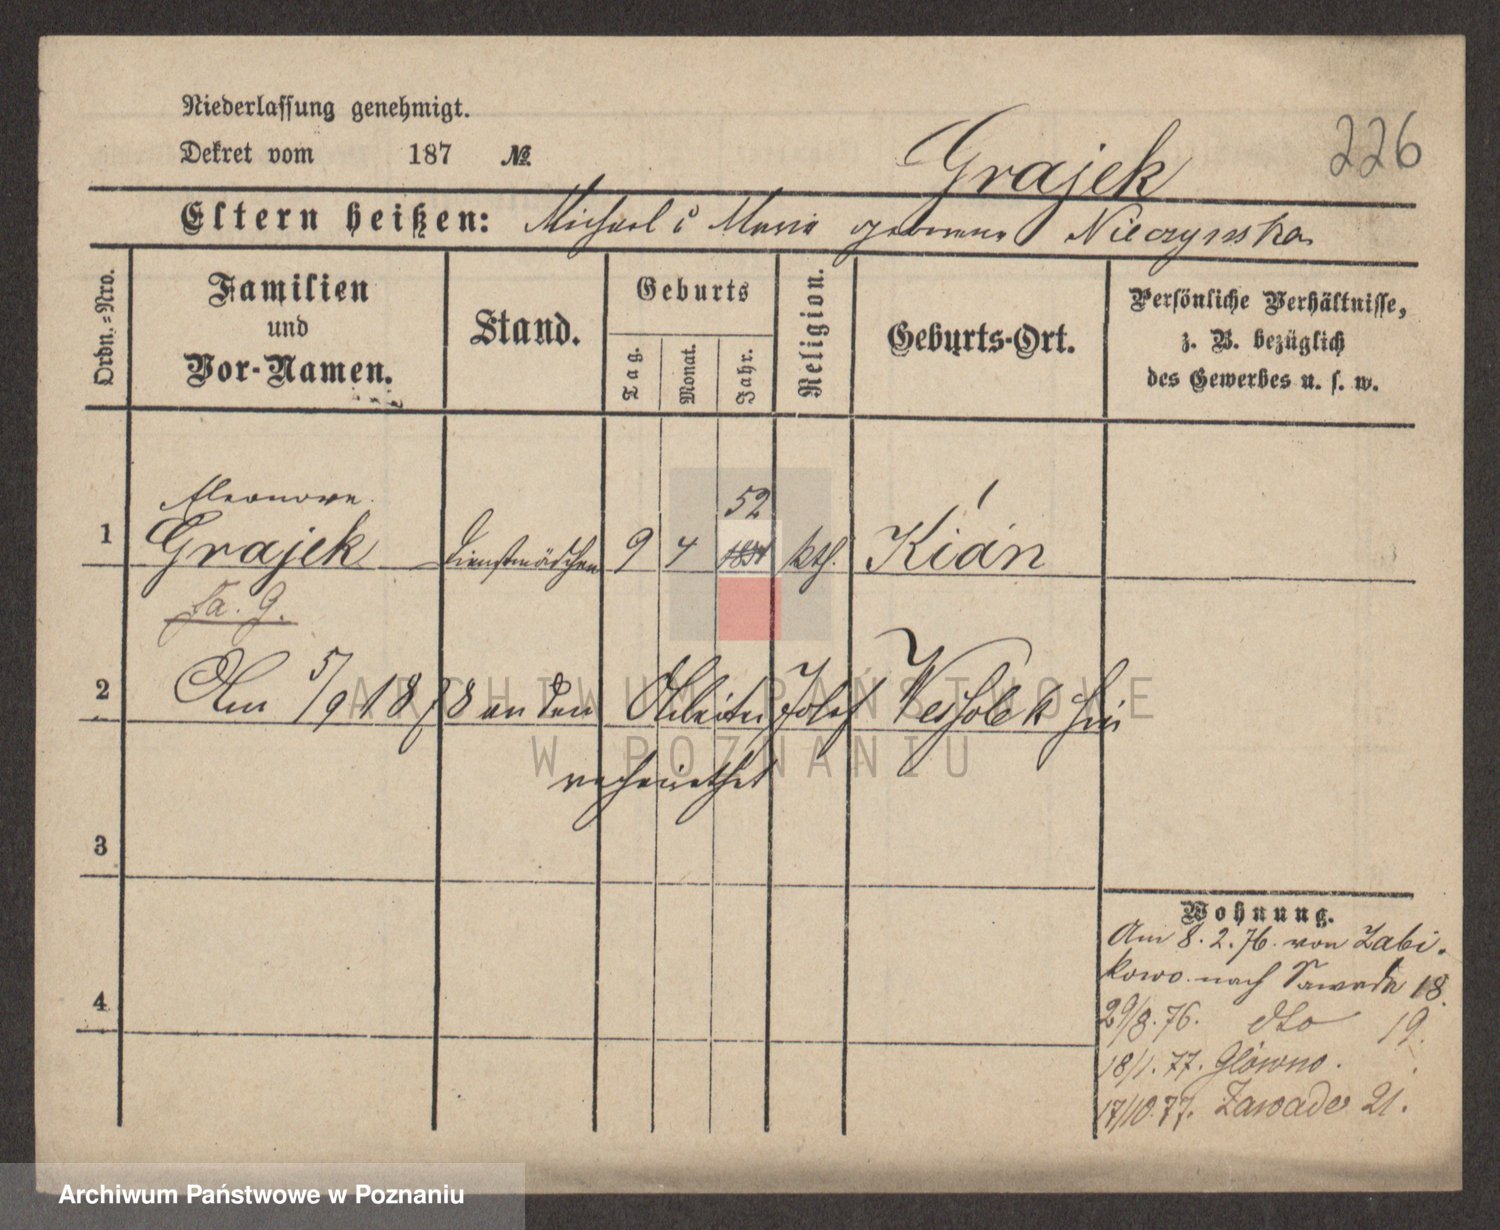 Niederlassung genehmigt.
Dekret vom 187 №.
Grajek
226
Eltern heißen: Michael u Maria geborene Nieczynska
Ordn.-Nro.
Familien
und
Vor-Namen.
Stand.
Geburts
Tag.
Monat.
Jahr.
Religion.
Geburts-Ort.
Persönliche Verhältnisse,
z. B. bezüglich
des Gewerbes u. s. w.
Eleonore
52
1 Grajek Dienstmädchen 9 4 kth. Kián
Fa. G.
2 Am 5/9 1878 an den Arbeiter Josef Wesholek hier
verheirathet
3
4
Wohnung.
Am 8. 2. 76. von Zabi-
kowo nach Zawade 18.
29/8. 76. dto 19.
18/1. 77. Glówno.
17/10. 77. Zawade 21.
ARCHIWUM PAŃSTWOWE
W POZNANIU
Archiwum Państwowe w Poznaniu